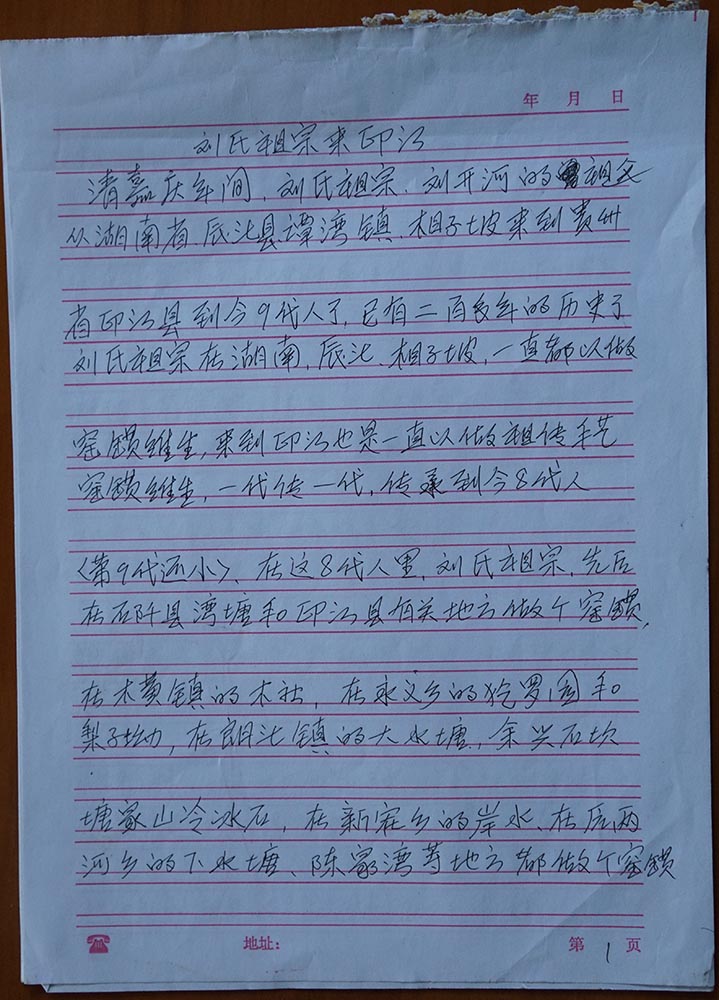 年 月 日
刘氏祖宗来印江
清嘉庆年间，刘氏祖宗、刘开河的祖父
从湖南省、辰沅县潭湾镇、相子坡来到贵州
省印江县到今9代人了，已有二百多年的历史了
刘氏祖宗在湖南，辰沅、相子坡，一直都以做
窑罐维生，来到印江也是一直以做祖传手艺
窑罐维生，一代传一代，传承到今8代人
〈第9代还小〉、在这8代人里，刘氏祖宗，先后
在石阡县湾塘和印江县有关地方做个窑罐，
在木黄镇的木社，在永义乡的 罗园和
梨子坳，在朗沅镇的大水塘，余兴石坎
塘家山冷冰石，在新寨乡的岸水、在后两
河乡的下水塘、陈家湾等地方都做个窑罐
地址： 第 1 页